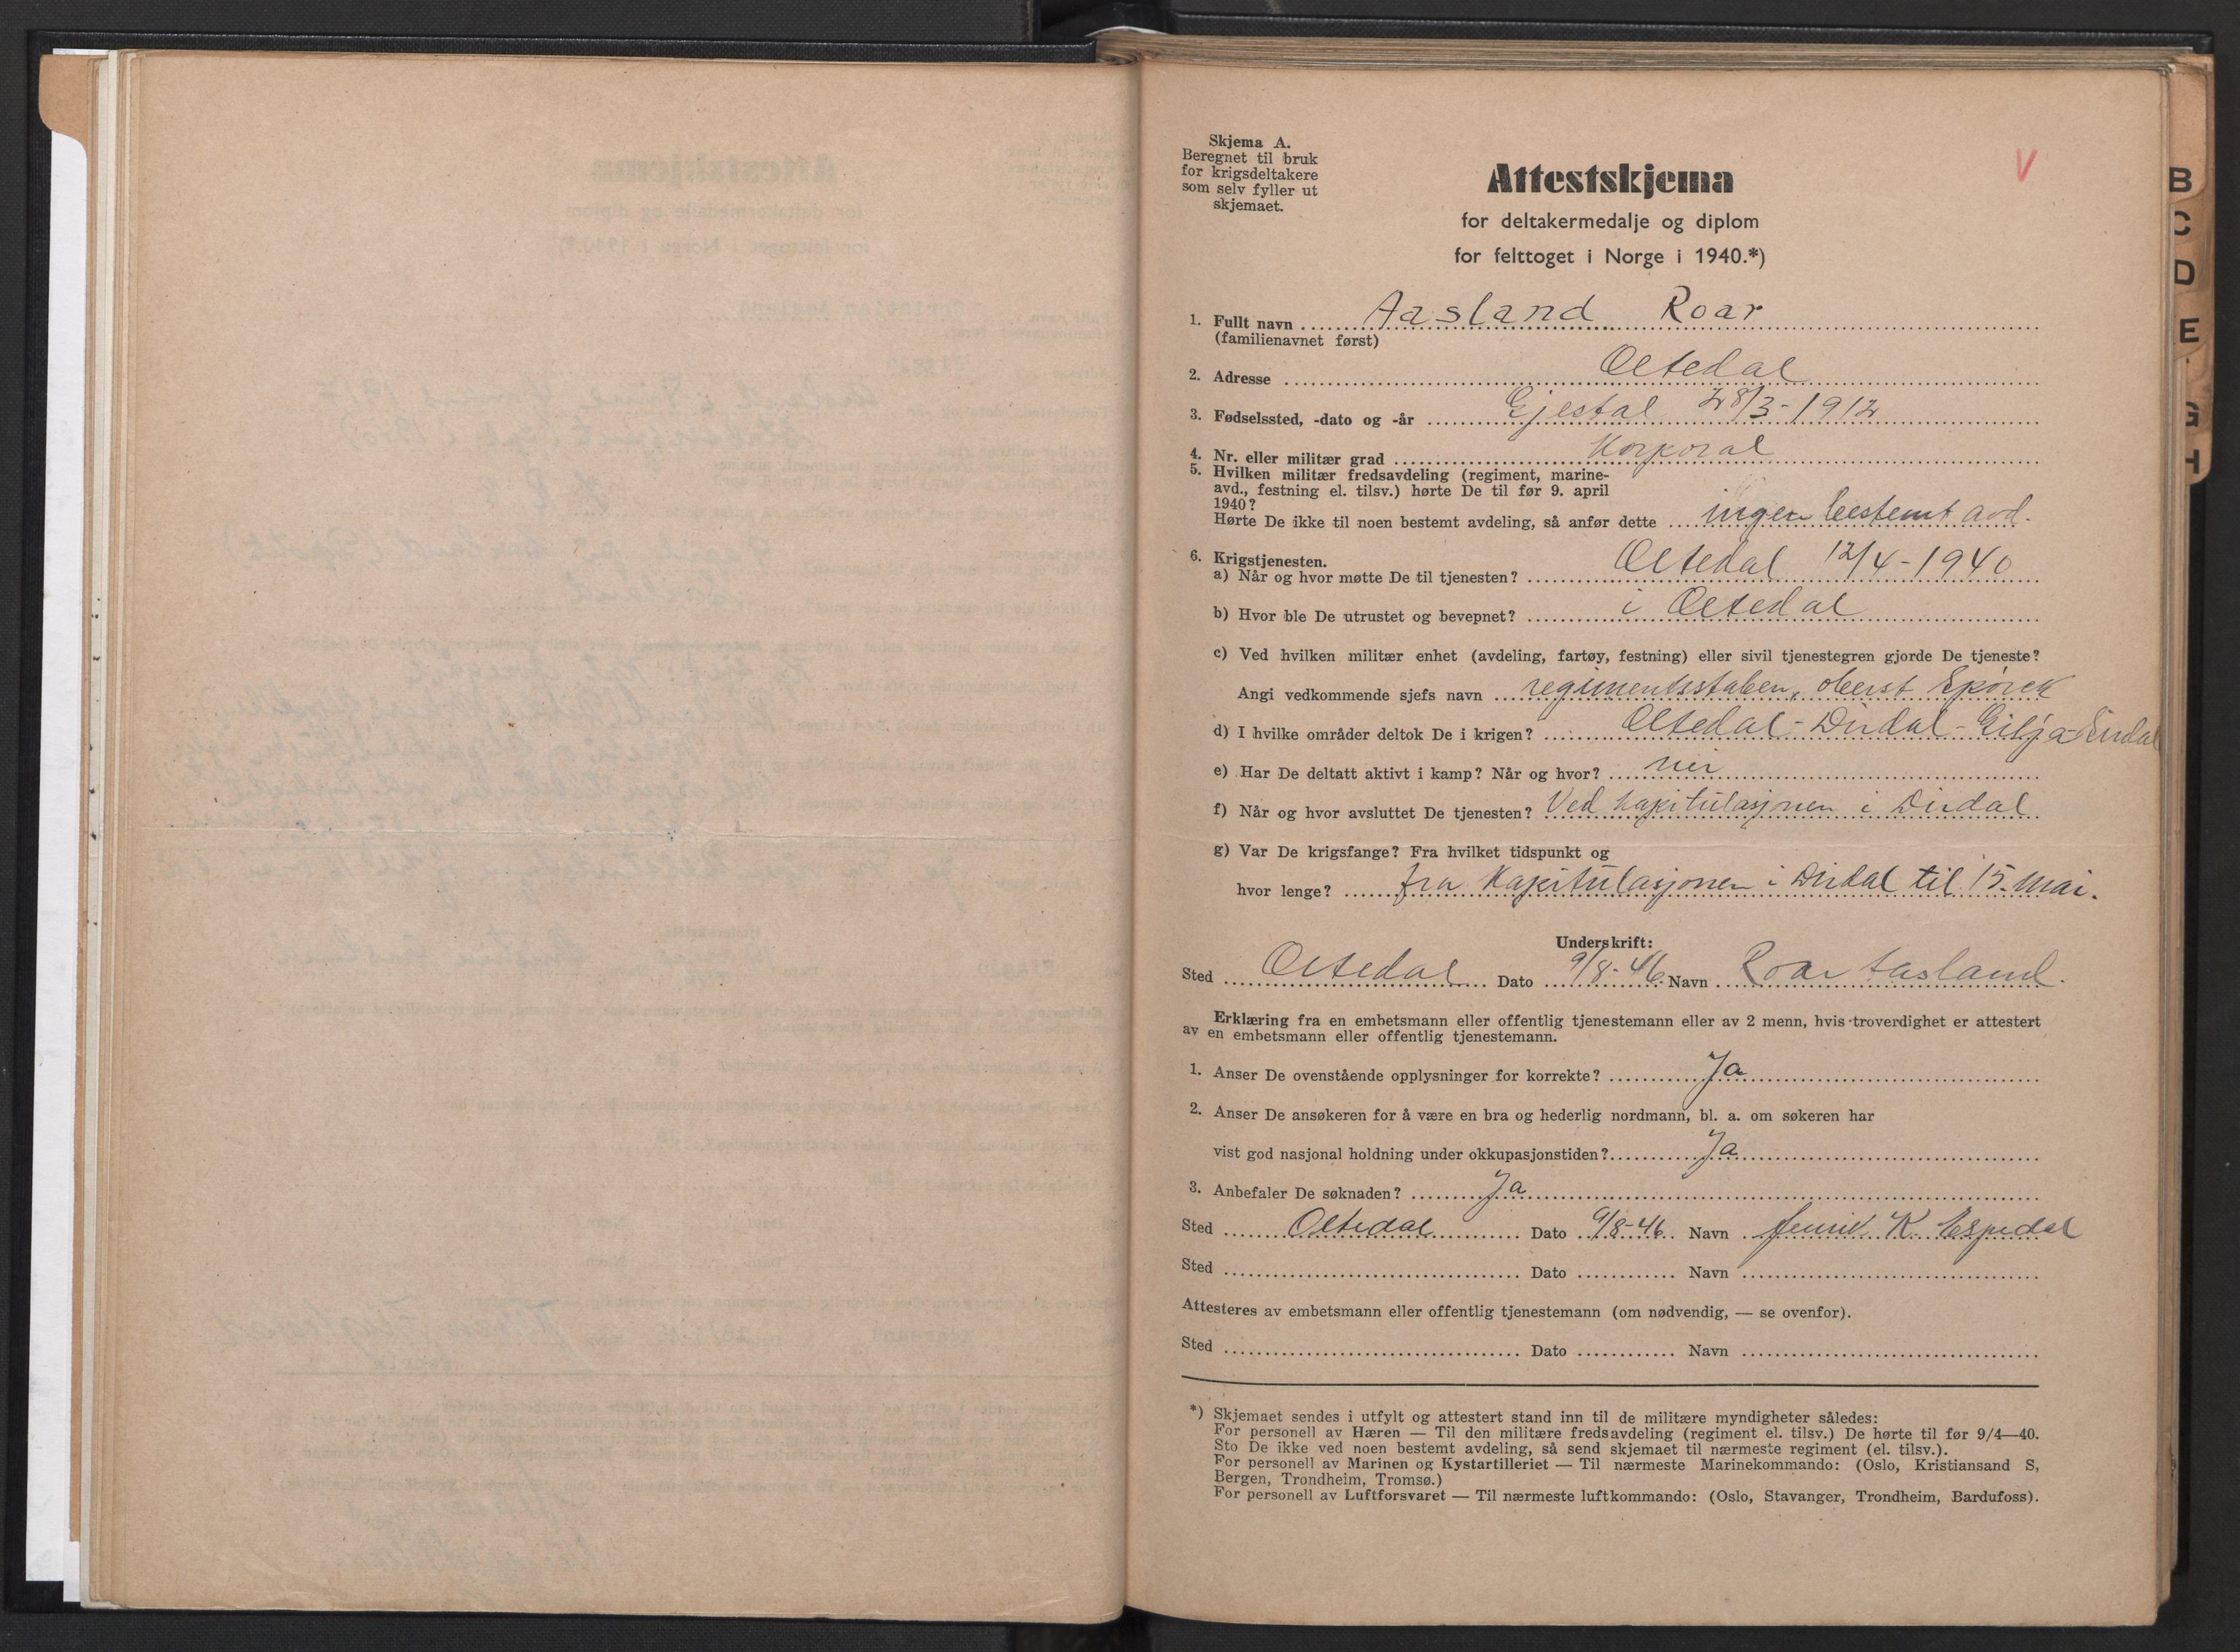 Skjema A.
Beregnet til bruk
for krigsdeltakere
som selv fyller ut
skjemaet.
V
Attestskjema
for deltakermedalje og diplom
for felttoget i Norge i 1940.*)
1. Fullt navn Aasland Roar
(familienavnet først)
2. Adresse Oltedal
3. Fødselssted, -dato og -år Gjestal 28/3-1912
4. Nr. eller militær grad Korporal
5. Hvilken militær fredsavdeling (regiment, marine-
avd., festning el. tilsv.) hørte De til før 9. april
1940?
Hørte De ikke til noen bestemt avdeling, så anfør dette ingen bestemt avd.
6. Krigstjenesten.
a) Når og hvor møtte De til tjenesten? Oltedal 12/4-1940
b) Hvor ble De utrustet og bevepnet? i Oltedal
c) Ved hvilken militær enhet (avdeling, fartøy, festning) eller sivil tjenestegren gjorde De tjeneste?
Angi vedkommende sjefs navn regimentsstaben, oberst Spørck
d) I hvilke områder deltok De i krigen? Oltedal - Dirdal - Gilja
e) Har De deltatt aktivt i kamp? Når og hvor? nei
f) Når og hvor avsluttet De tjenesten? Ved kapitulasjonen i Dirdal
g) Var De krigsfange? Fra hvilket tidspunkt og
hvor lenge? fra Kapitulasjonen i Dirdal til 15. mai.
Underskrift:
Sted Oltedal Dato 9/8-46 Navn Roar Aasland.
Erklæring fra en embetsmann eller offentlig tjenestemann eller av 2 menn, hvis troverdighet er attestert
av en embetsmann eller offentlig tjenestemann.
1. Anser De ovenstående opplysninger for korrekte? Ja
2. Anser De ansøkeren for å være en bra og hederlig nordmann, bl. a. om søkeren har
vist god nasjonal holdning under okkupasjonstiden? Ja
3. Anbefaler De søknaden? Ja
Sted Oltedal Dato 9/8-46 Navn Henrik K. Espedal
Sted Dato Navn
Attesteres av embetsmann eller offentlig tjenestemann (om nødvendig, — se ovenfor).
Sted Dato Navn
*) Skjemaet sendes i utfylt og attestert stand inn til de militære myndigheter således:
For personell av Hæren — Til den militære fredsavdeling (regiment el. tilsv.) De hørte til før 9/4—40.
Sto De ikke ved noen bestemt avdeling, så send skjemaet til nærmeste regiment (el. tilsv.).
For personell av Marinen og Kystartilleriet — Til nærmeste Marinekommando: (Oslo, Kristiansand S,
Bergen, Trondheim, Tromsø.)
For personell av Luftforsvaret — Til nærmeste luftkommando: (Oslo, Stavanger, Trondheim, Bardufoss).
B
C
D
E
G
H